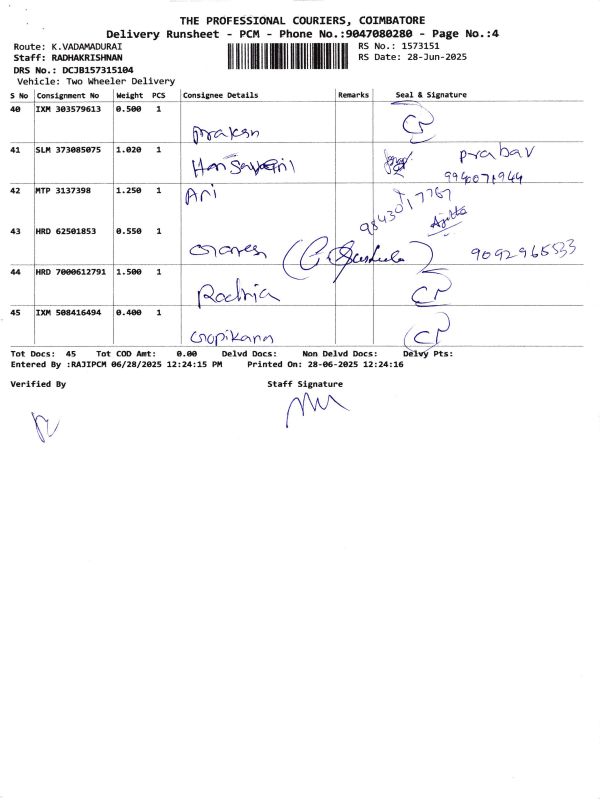 THE PROFESSIONAL COURIERS, COIMBATORE
Delivery Runsheet - PCM - Phone No.:9047080280 - Page No.:4
Route: K.VADAMADURAI RS No.: 1573151
Staff: RADHAKRISHNAN RS Date: 28-Jun-2025
DRS No.: DCJB157315104
Vehicle: Two Wheeler Delivery
S No Consignment No Weight PCS Consignee Details Remarks Seal & Signature
40 IXM 303579613 0.500 1
CP
41 SLM 373085075 1.020 1
prabav
42 MTP 3137398 1.250 1
Ari 9843017767
43 HRD 62501853 0.550 1
9092965533
44 HRD 7000612791 1.500 1
CP
45 IXM 508416494 0.400 1
Gopikann CP
Tot Docs: 45 Tot COD Amt: 0.00 Delvd Docs: Non Delvd Docs: Delvy Pts:
Entered By :RAJIPCM 06/28/2025 12:24:15 PM Printed On: 28-06-2025 12:24:16
Verified By Staff Signature